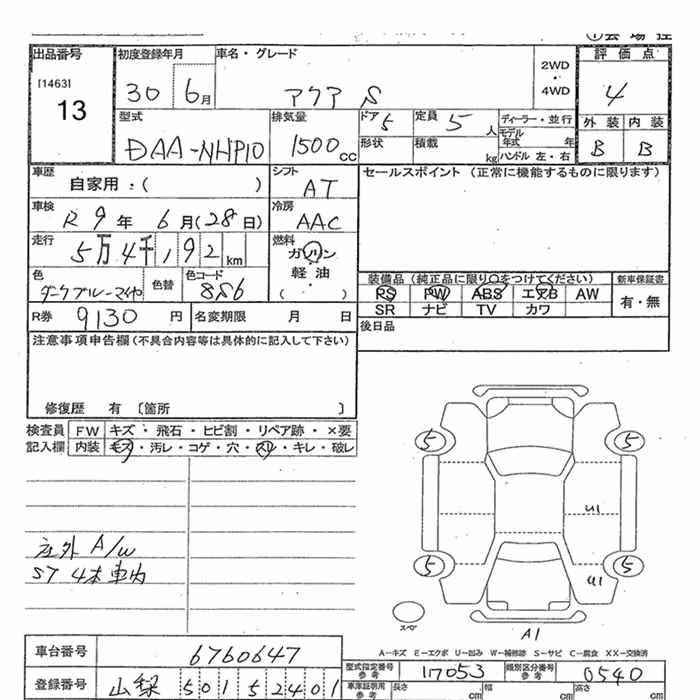 ①会場控
出品番号 初度登録年月 車名・グレード 評価点
[1463] 13
30 6月 アクア S 2WD・4WD 4
型式 排気量 ドア 5 定員 5人 ディーラー・並行 外装 内装
DAA-NHP10 1500cc 形状 積載 kg モデル年式 年 ハンドル 左・右 B B
車歴 自家用:( ) シフト AT セールスポイント (正常に機能するものに限ります)
車検 R9年6月(28日) 冷房 AAC
走行 5万4千192km 燃料 ガソリン 軽油・( )
色 ダークブルーマイカ 色替 色コード 8S6 装備品 (純正品に限り○をつけてください) 新車保証書
PS PW ABS エアB AW 有・無
SR ナビ TV カワ
R券 9130円 名変期限 月 日 後日品
注意事項申告欄(不具合内容等は具体的に記入して下さい)
修復歴 有 〔箇所 〕
検査員 FW キズ・飛石・ヒビ割・リペア跡・×要
記入欄 内装 キズ・汚レ・コゲ・穴・スリ・キレ・破レ
5 5
U1
社外 A/W
ST 4本車内
5 5
U1
スペア
A1
A-キズ E-エクボ U-凹み W-補修跡 S-サビ C-腐食 XX-交換済
車台番号 6760647 型式指定番号 参考 17053 類別区分番号 参考 0540
登録番号 山梨 501 5 2401 車庫証明用 参考 長さ cm 幅 cm 高さ cm